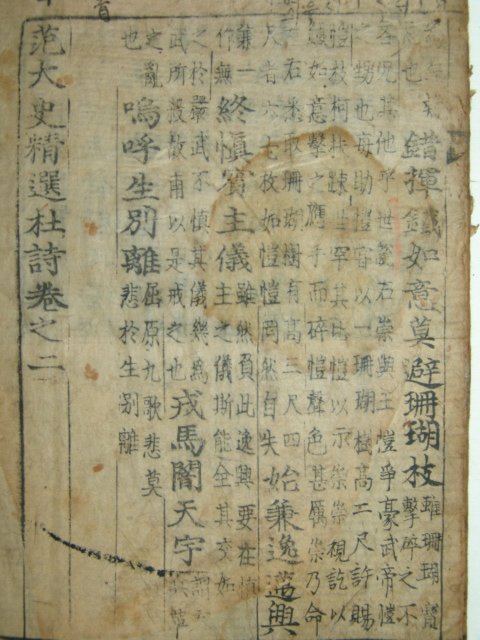 也
錯揮鐵如意莫避珊瑚枝
雖珊瑚寶
擊碎之不
其他乎世說石崇與王愷爭豪武帝愷
之甥也每助愷嘗以一珊瑚樹高二尺許賜
愷枝柯扶疎世罕其比愷以示崇崇視訖以
如意擊之應手而碎愷聲色甚厲崇乃命
左右悉取珊瑚樹有高三尺四
尺者六七枚如愷愷罔然自失
始兼逸邁興
兼一
作無
終慎賓主儀
雖然負此逸興要在
主之儀斯能全其交如
之於嚴武不慎其儀幾為
武所殺故甫以是戒之也
戎馬闇天宇
定亂
也
嗚呼生別離
屈原九歌悲莫
悲於生別離
范大史精選杜詩卷之二